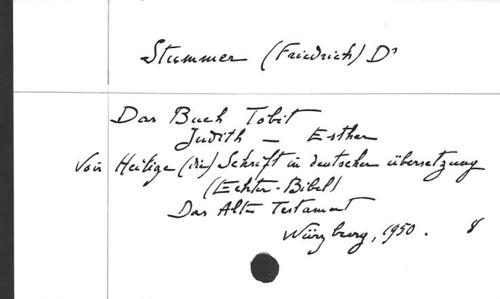 Stummer (Friedrich) Dr
Das Buch Tobit
Judith — Esther
Voir Heilige (die) Schrift in deutscher übersetzung
(Echter-Bibel)
Das Alte Testament
Würzburg, 1950. 8